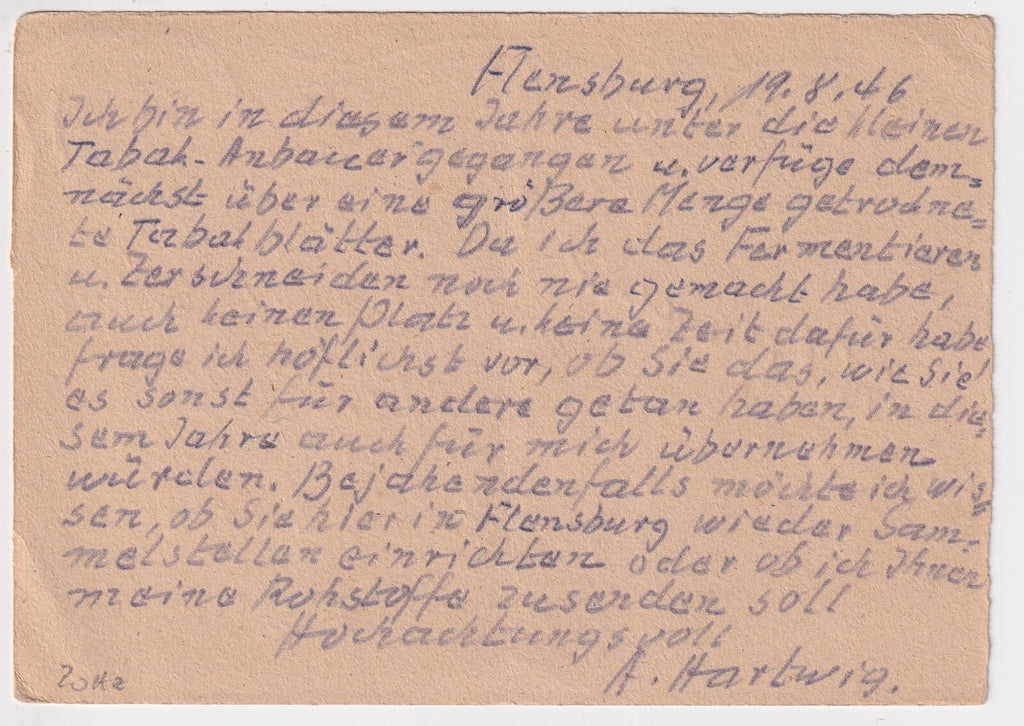 Flensburg, 19.8.46
Ich bin in diesem Jahre unter die kleinen
Tabak-Anbauer gegangen u. verfüge dem-
nächst über eine größere Menge getrockne-
te Tabakblätter. Da ich das Fermentieren
u. Zerschneiden noch nie gemacht habe,
auch keinen Platz u. keine Zeit dafür habe,
frage ich höflichst vor, ob Sie das, wie Sie
es sonst für andere getan haben, in die-
sem Jahre auch für mich übernehmen
würden. Bejahendenfalls möchte ich wis-
sen, ob Sie hier in Flensburg wieder Sam-
melstellen einrichten oder ob ich Ihnen
meine Rohstoffe zusenden soll
Hochachtungsvoll
A. Hartwig.